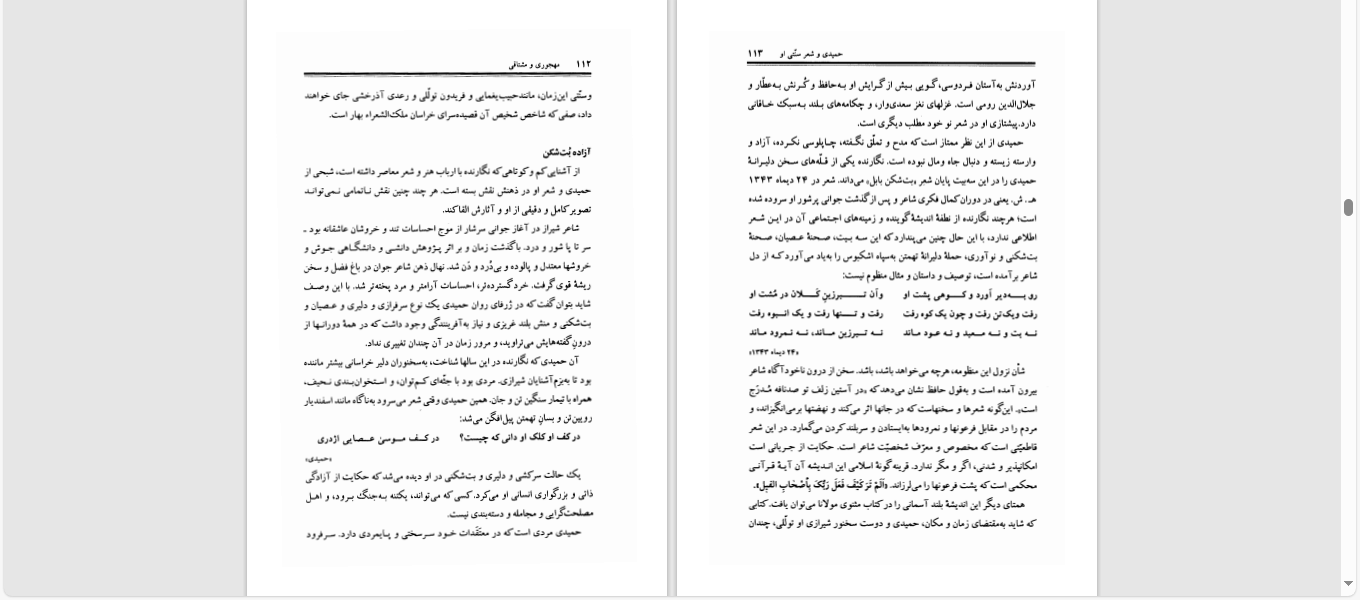 ۱۱۲ مهجوری و مشتاقی
وسنّتی این‌زمان، مانند حبیب یغمایی و فریدون تولّلی و رعدی آذرخشی جای خواهند
داد، صفی که شاخص شخیص آن قصیده‌سرای خراسان ملک‌الشعراء بهار است.
آزاده بُت‌شکن
از آشنایی کم و کوتاهی که نگارنده با ارباب هنر و شعر معاصر داشته است، شبحی از
حمیدی و شعر او در ذهنش نقش بسته است. هر چند چنین نقش ناتمامی نـمی‌توانـد
تصویر کامل و دقیقی از او و آثارش القا کند.
شاعر شیراز در آغاز جوانی سرشار از موج احساسات تند و خروشان عاشقانه بود ـ
سر تا پا شور و درد. باگذشت زمان و بر اثر پـژوهش دانشـی و دانشگـاهی جـوش و
خروشها معتدل و پالوده و بی‌دُرد و دَن شد. نهال ذهن شاعر جوان در باغ فضل و سخن
ریشهٔ قوی گرفت. خرد گسترده‌تر، احساسات آرامتر و مرد پخته‌تر شد. با این وصـف
شاید بتوان گفت که در ژرفای روان حمیدی یک نوع سرفرازی و دلیری و عـصیان و
بت‌شکنی و منش بلند غریزی و نیاز به آفرینندگی وجود داشت که در همهٔ دورانهـا از
درونِ گفته‌هایش می‌تراوید، و مرور زمان در آن چندان تغییری نداد.
آن حمیدی که نگارنده در این سالها شناخت، به‌سخنوران دلیر خراسانی بیشتر ماننده
بود تا به‌بزم آشنایان شیرازی. مردی بود با جثّه‌ای کـم‌توان، و اسـتخوان‌بـندی نـحیف،
همراه با تیمار سنگین تن و جان. همین حمیدی وقتی شعر می‌سرود به‌ناگاه مانند اسفندیار
رویین‌تن و بسان تهمتن پیل‌افگن می‌شد:
در کف او کلک او دانی که چیست؟ در کـف مـوسیٰ عـصایی اژدری
«حمیدی»
یک حالت سرکشی و دلیری و بت‌شکنی در او دیده می‌شد که حکایت از آزادگی
ذاتی و بزرگواری انسانی او می‌کرد. کسی که می‌تواند، یکتنه بـه‌جنگ بـرود، و اهـل
مصلحت‌گرایی و مجامله و دسته‌بندی نیست.
حمیدی مردی است که در معتَقَدات خـود سـرسختی و پـایمردی دارد. سـرفرود
حمیدی و شعر سنّتی او ۱۱۳
آوردنش به‌آستان فـردوسی، گـویی بـیش از گـرایش او بـه‌حافظ و کُـرنش بـه‌عطّار و
جلال‌الدین رومی است. غزلهای نغز سعدی‌وار، و چکامه‌های بـلند بـه‌سبک خـاقانی
دارد. پیشتازی او در شعر نو خود مطلب دیگری است.
حمیدی از این نظر ممتاز است که مدح و تملّق نگـفته، چـاپلوسی نکـرده، آزاد و
وارسته زیسته و دنبال جاه ومال نبوده است. نگارنده یکی از قـلّه‌های سـخن دلیـرانـهٔ
حمیدی را در این سه‌بیت پایان شعر «بت‌شکن بابل» می‌داند. شعر در ۲۴ دیماه ۱۳۴۳
هـ. ش. یعنی در دوران کمال فکری شاعر و پس از گذشت جوانی پرشور او سروده شده
است؛ هرچند نگارنده از نطفهٔ اندیشهٔ گوینده و زمینه‌های اجـتماعی آن در ایـن شـعر
اطلاعی ندارد، با این حال چنین می‌پندارد که این سه بـیت، صـحنهٔ عـصیان، صـحنهٔ
بت‌شکنی و نو آوری، حملهٔ دلیرانهٔ تهمتن به‌سپاه اشکبوس را به‌یاد می‌آورد کـه از دل
شاعر برآمده است، توصیف و داستان و مثال منظوم نیست:
رو بــه‌دیر آورد و کــوهی پشت او وآن تــبرزینِ گــلان در مُشت او
رفت ویک تن رفت و چون یک کوه رفت رفت و تــنها رفت و یک انـبوه رفت
نـه بت و نـه مـعبد و نـه عـود مـاند نـه تـبرزین مـاند، نـه نـمرود مـاند
«۲۴ دیماه ۱۳۴۳»
شأن نزول این منظومه، هرچه می‌خواهد باشد، باشد. سخن از درون ناخودآگاه شاعر
بیرون آمده است و به‌قول حافظ نشان می‌دهد که «در آستین زلف تو صدنافه مُـدرَج
است». این‌گونه شعرها و سخنهاست که در جانها اثر می‌کند و نهضتها برمی‌انگیزاند، و
مردم را در مقابل فرعونها و نمرودها به‌ایستادن و سربلند کردن می‌گمارد. در این شعر
قاطعیّتی است که مخصوص و معرّف شخصیّت شاعر است. حکایت از جـریانی است
امکانپذیر و شدنی، اگر و مگر ندارد. قرینه‌گونهٔ اسلامی این انـدیشه آن آیـهٔ قـرآنـی
محکمی است که پشت فرعونها را می‌لرزاند. «اَلَمْ تَرَ کَیْفَ فَعَلَ رَبُّکَ بِأَصْحَابِ الفِیل».
همتای دیگر این اندیشهٔ بلند آسمانی را در کتاب مثنوی مولانا می‌توان یافت. کتابی
که شاید به‌مقتضای زمان و مکان، حمیدی و دوست سخنور شیرازی او تولّلی، چندان